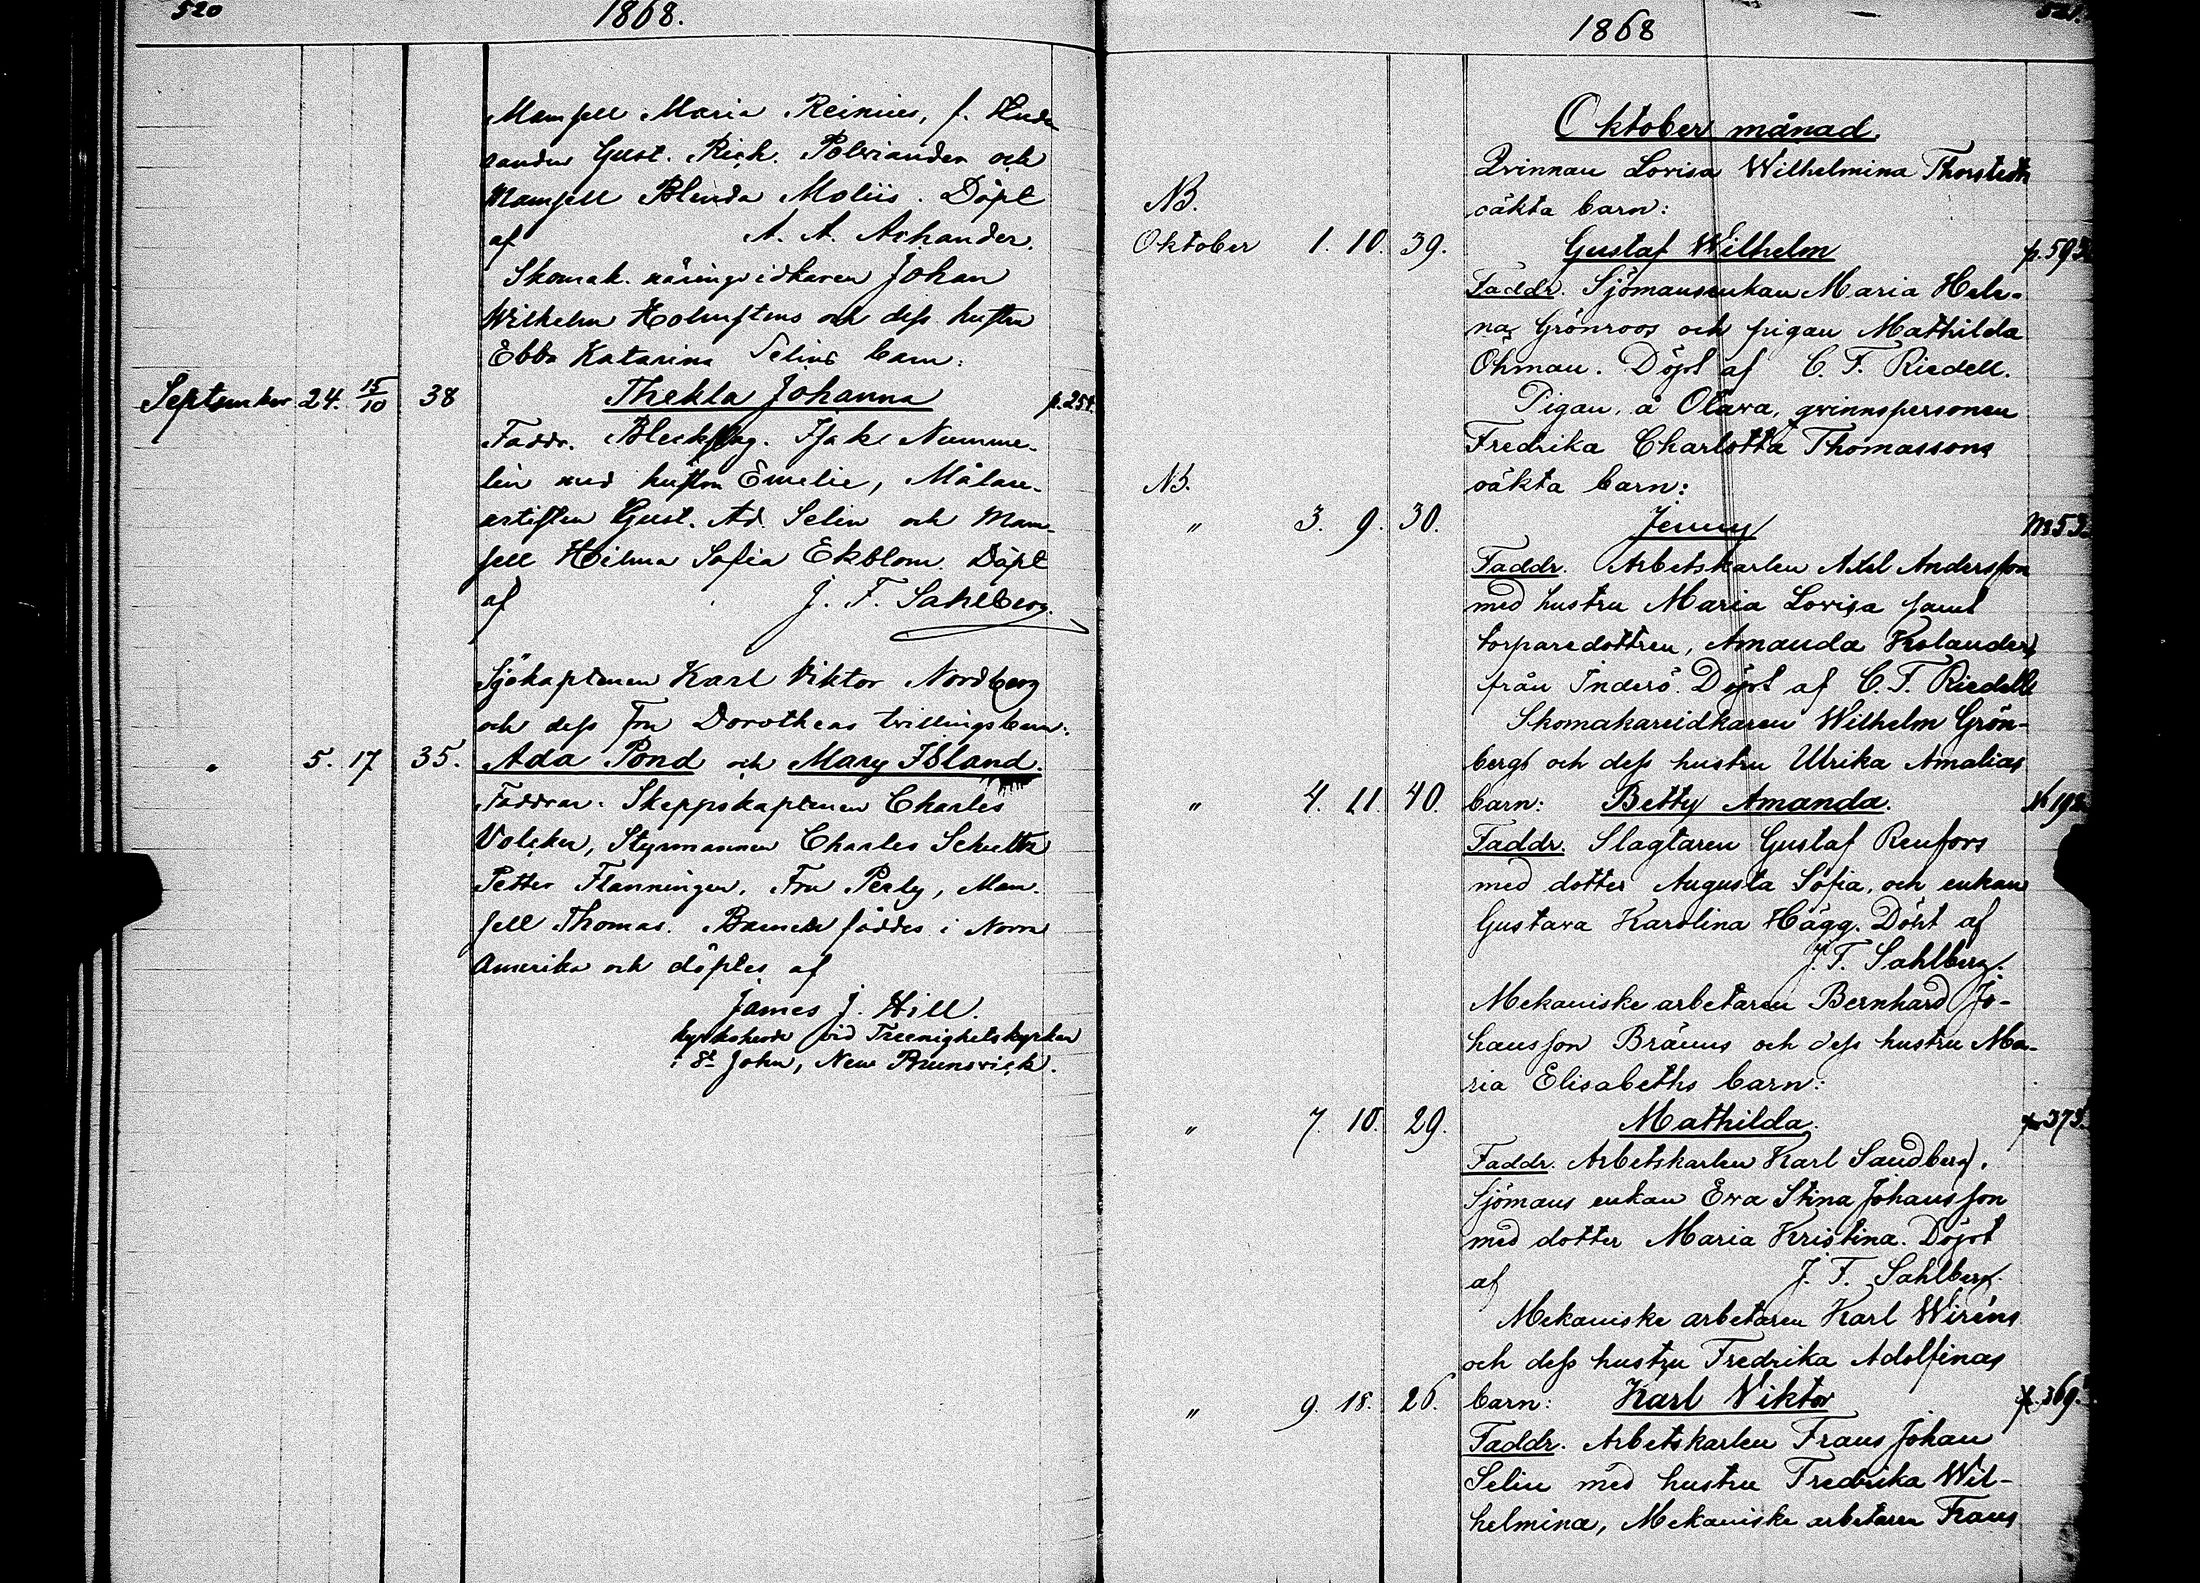 520
1868.
Mamsell Maria Reinius, f. Hand
Gust. Rich. Polviander och
Mamsell Blenda Moliis. Döpt
af A. A. Achander.
Skomak. näringsidkaren Johan
Wilhelm Holmstens och dess hustru
Ebba Katarina Selins barn:
September 24. 15/10 38 Thekla Johanna p. 254.
Faddr. Bleckslag. Isak Numme-
lin med hustru Emelie, Målare-
artisten Gust. Ad. Selin och Mam-
sell Hilma Sofia Ekblom. Döpt
af J. F. Sahlberg.
Sjökaptenen Karl Viktor Nordberg
och dess Fru Dorotheas tvillingsbarn:
" 5. 17 35. Ada Pond och Mary Island.
Faddrar. Skeppskaptenen Charles
Volcker, Styrmannen Charles Schultz
Petter Flanningen, Fru Perly, Mam-
sell Thomas. Barnen föddes i Norra
Amerika och döptes af
James J. Hill.
kyrkoherde vid Treenighetskyrkan
i St John, New Brunsvick.
521.
1868
Oktober månad.
Qvinnan Lovisa Wilhelmina Thorstedts
NB. oäkta barn:
Oktober 1. 10. 39. Gustaf Wilhelm p. 593
Faddr. Sjömansenkan Maria Hele-
na Grönroos och pigan Mathilda
Öhman. Döpt af C. F. Riedell.
Pigan, å Olava, qvinnspersonen
Fredrika Charlotta Thomassons
NB. oäkta barn:
" 3. 9. 30. Jenny
Faddr. Arbetskarlen Axel Andersson
med hustru Maria Lovisa samt
torparedottren, Amanda Kolander,
från Inderö. Döpt af C. F. Riedell
Skomakareidkaren Wilhelm Grön-
bergs och dess hustru Ulrika Amalias
" 4. 11. 40. barn: Betty Amanda.
Faddr. Slagtaren Gustaf Renfors
med dotter Augusta Sofia, och enkan
Gustava Karolina Hägg. Döpt af
J. F. Sahlberg.
Mekaniske arbetaren Bernhard Jo-
hansson Bräuns och dess hustru Ma-
ria Elisabeths barn:
" 7. 10. 29. Mathilda. 373.
Faddr. Arbetskarlen Karl Sandberg,
Sjömans enkan Eva Stina Johansson
med dotter Maria Kristina. Döpt
af J. F. Sahlberg.
Mekaniske arbetaren Karl Wiréns
och dess hustru Fredrika Adolfinas
" 9. 18. 26. barn: Karl Viktor p. 369.
Faddr. Arbetskarlen Frans Johan
Selin med hustru Fredrika Wil-
helmina, Mekaniske arbetaren Frans